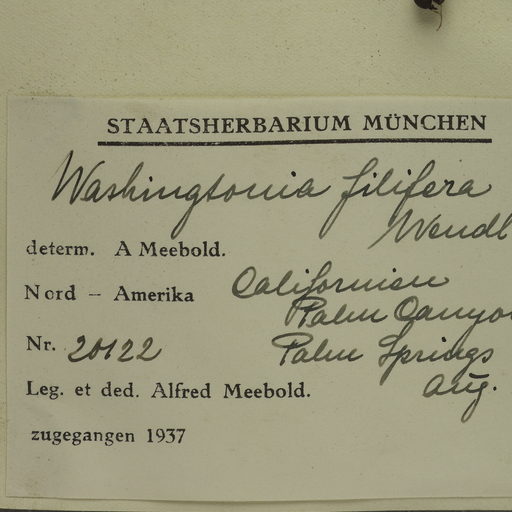 STAATSHERBARIUM MÜNCHEN
Washingtonia filifera
Wendl
determ. A Meebold.
Nord – Amerika Californien
Palm Canyon
Nr. 20122 Palm Springs
Aug.
Leg. et ded. Alfred Meebold.
zugegangen 1937